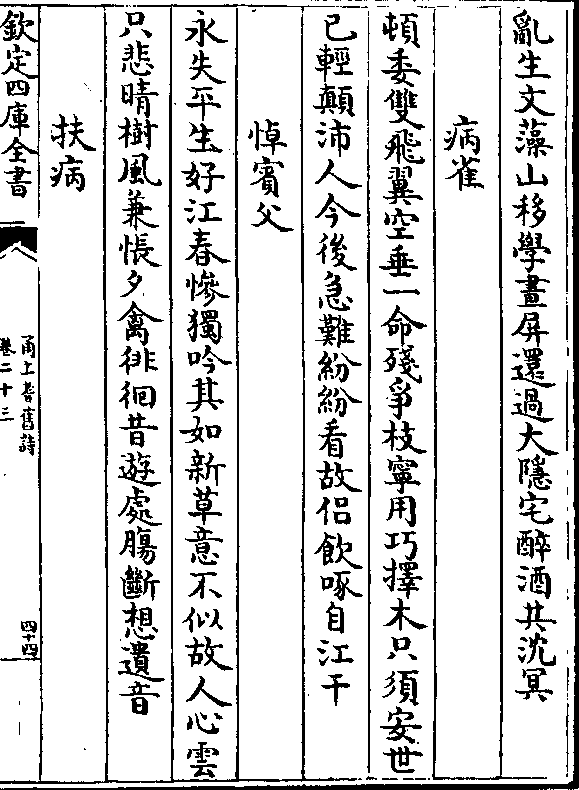 亂生文藻山移學畫屏還過大隱宅醉酒共沈冥
病雀
頓委雙飛翼空垂一命殘爭枝寧用巧擇木只須安世
已輕顛沛人今後急難紛紛看故侣飲啄自江干
悼賓父
永失平生好江春慘獨吟其如新草意不似故人心雲
只悲晴樹風兼悵夕禽徘徊昔遊處腸斷想遺音
扶病
欽定四庫全書
甬上耆舊詩
卷二十三
四十四